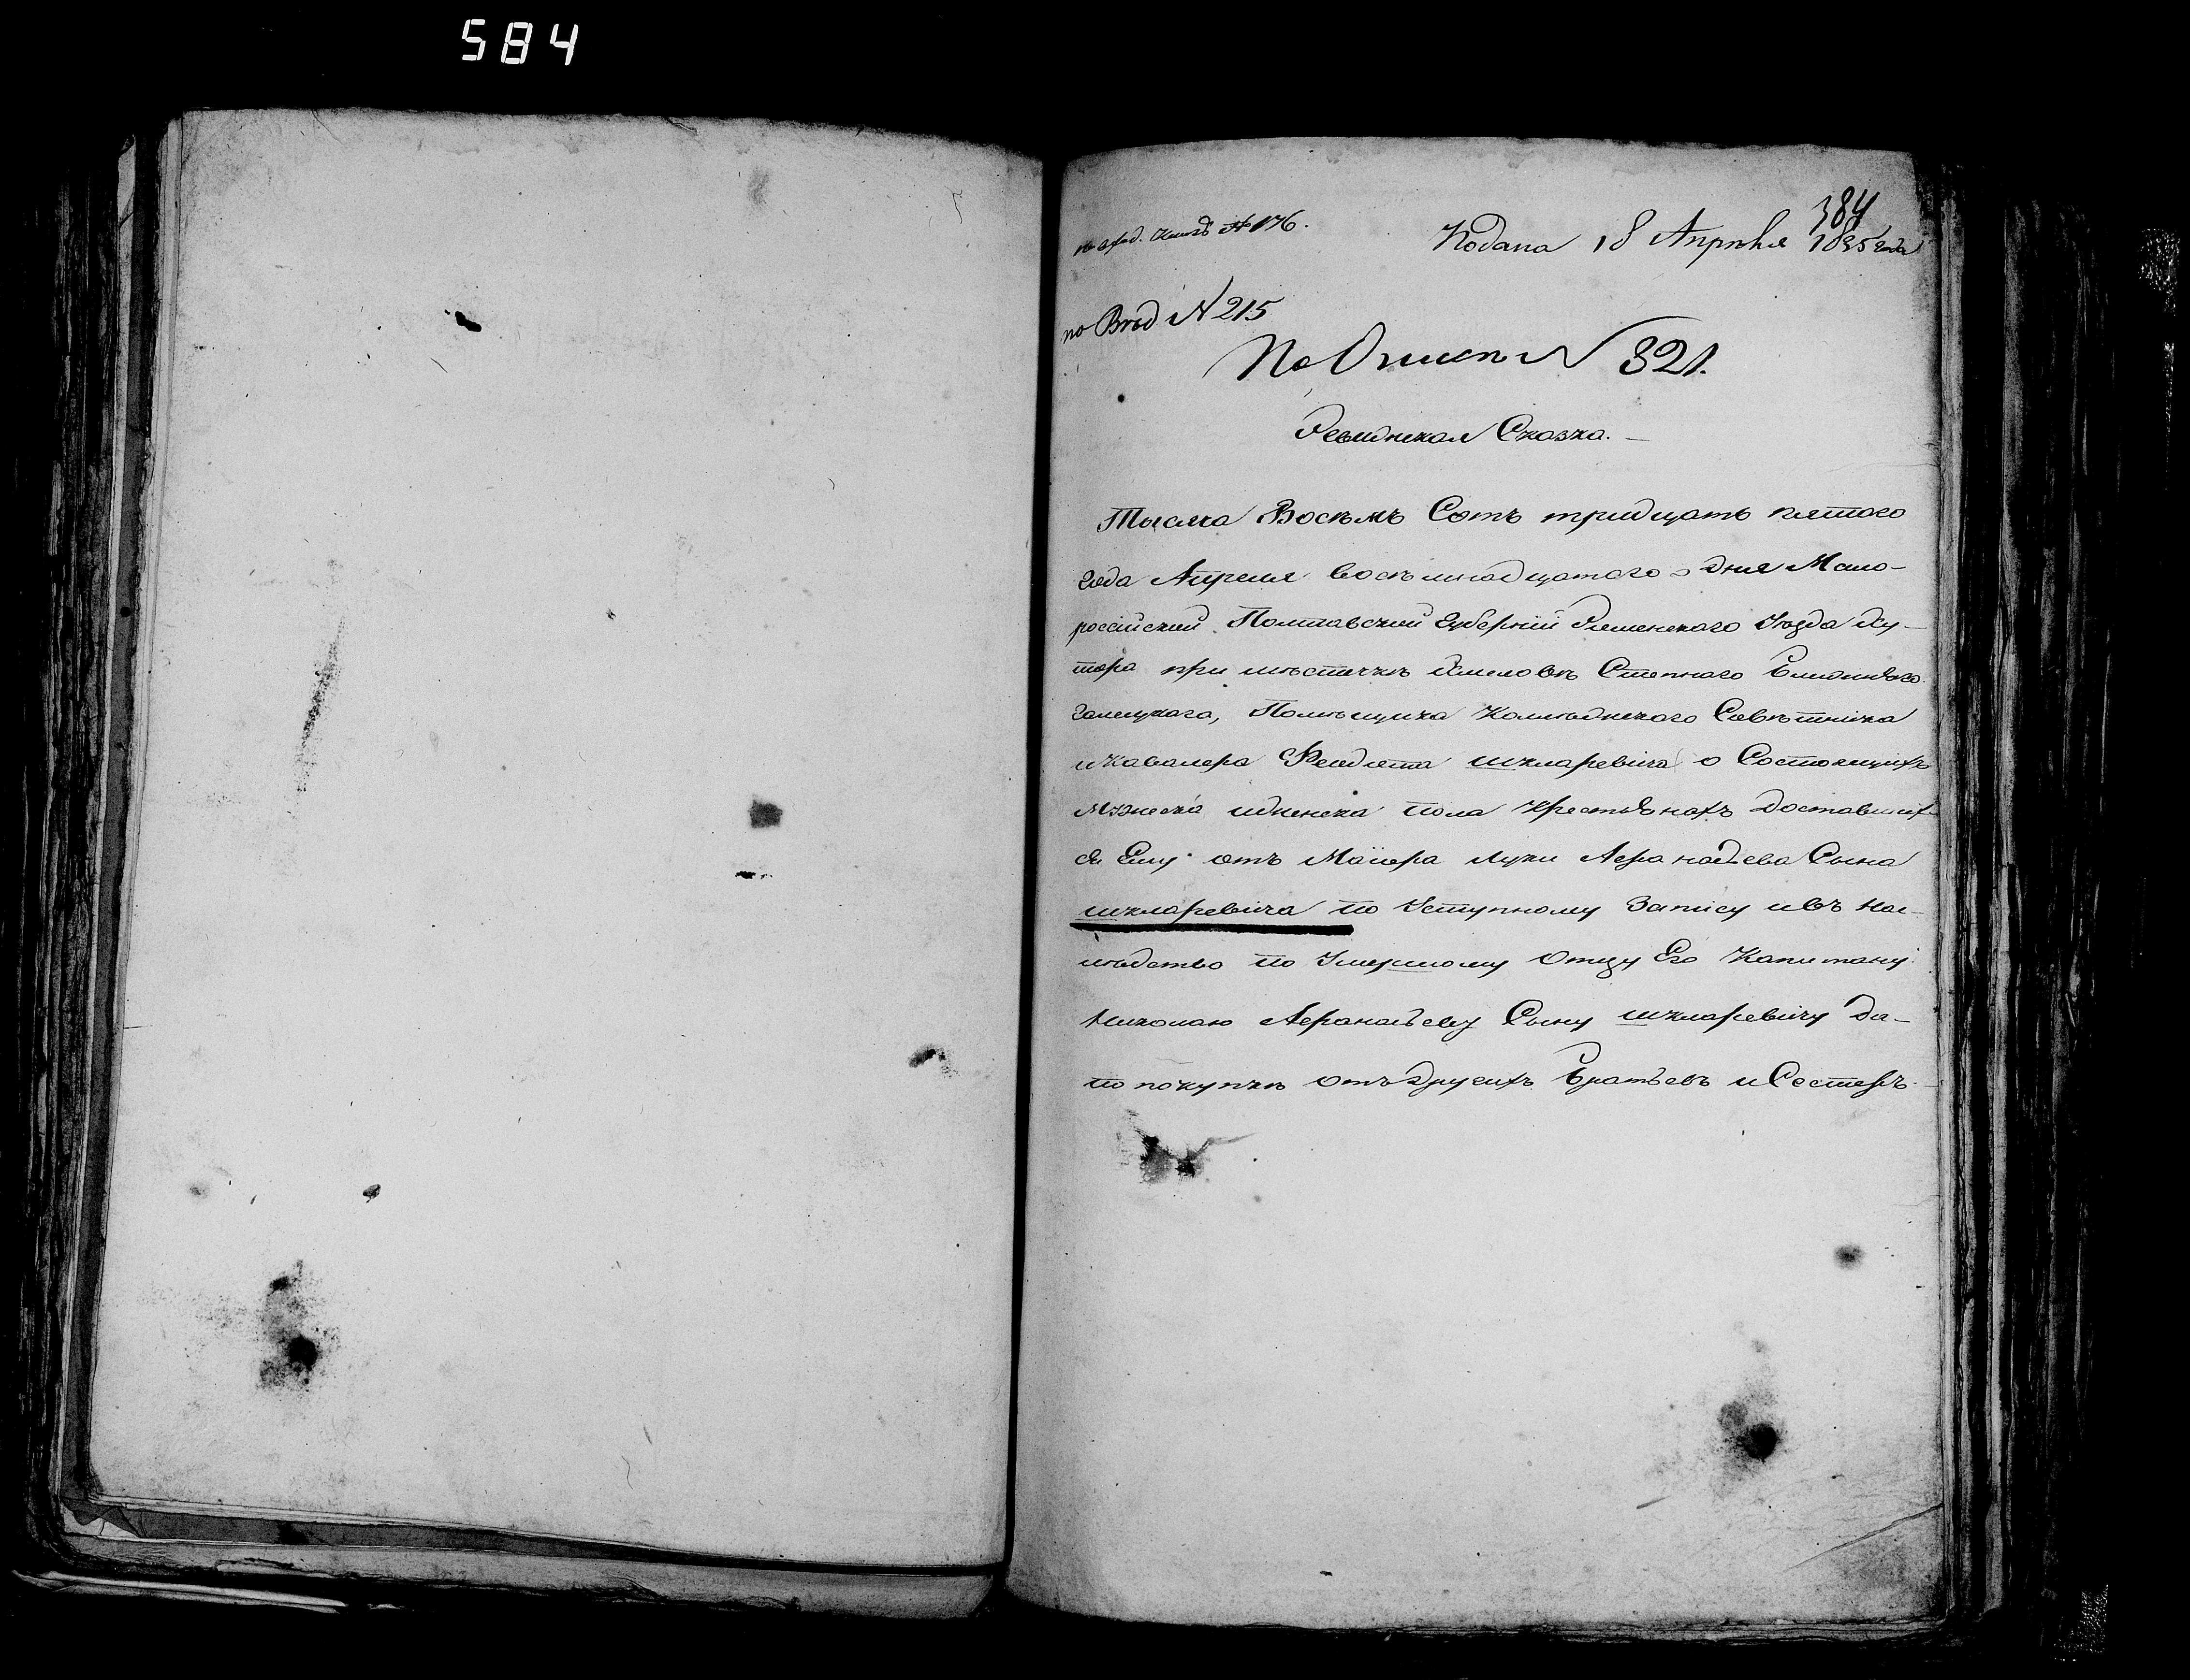 584
384
№ 176.
Подана 18 Апрѣля 1835 года
по Ввод № 215
По Описи № 321.
Ревизская Сказка.
Тысяча Восемъ Сотъ тридцать пятого
года Апреля восемнадцатого дня Мало-
россійской Полтавской Губерніи Роменского Уезда Ху-
тора при мѣстечкѣ Хмеловѣ Степного
Помѣщика Колежского Совѣтника
и Кавалера Шкларевича о Состоящихъ
Мужеска и женска пола Крестьянахъ доставших
ся Ему отъ Маіора Луки Афанасьева Сына
Шкларевича по Уступному Запису и въ нас-
лѣдство по Умершому Отцу Его Капитану
Николаю Афанасьеву Сыну Шкларевичу да-
по покупкѣ отъ других Братьевъ и Сестеръ